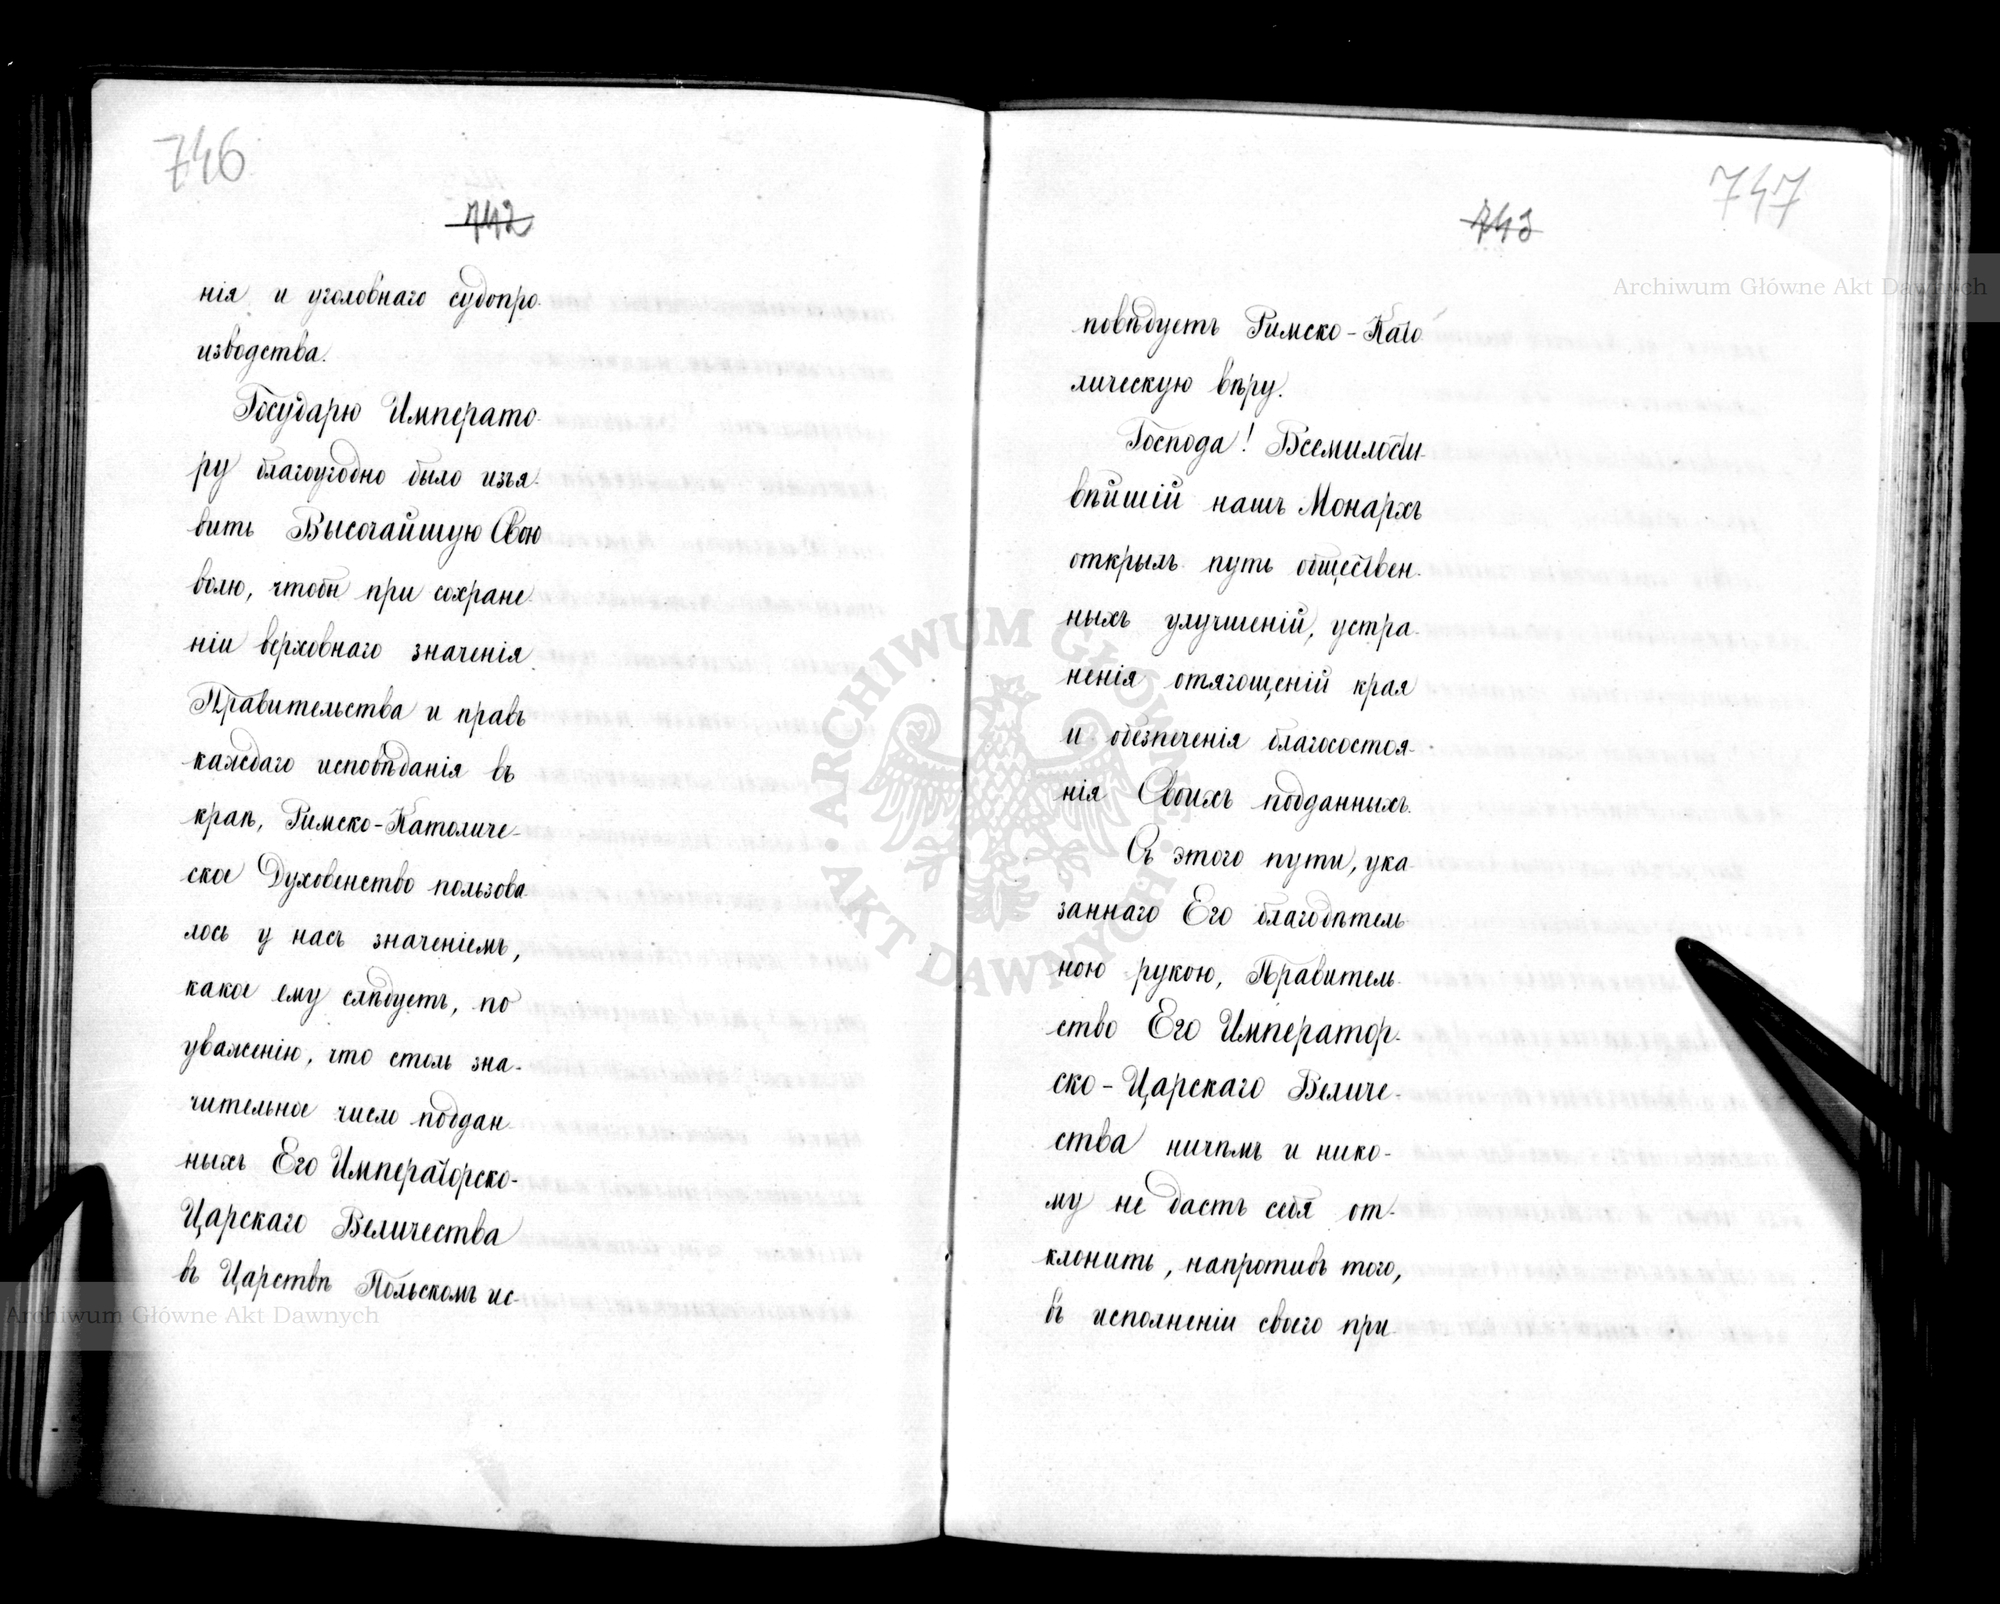 746
742
нія и уголовнаго судопро-
изводства.
Государю Императо-
ру благоугодно было изъя-
вить Высочайшую Свою
волю, чтобы при сохране-
ніи верховнаго значенія
Правительства и правъ
каждаго исповѣданія въ
краѣ, Римско-Католиче-
ское Духовенство пользова-
лось у насъ значеніемъ,
какое ему слѣдуетъ, по
уваженію, что столь зна-
чительное число поддан-
ныхъ Его Императорско-
Царскаго Величества
въ Царствѣ Польскомъ ис-
747
743
повѣдуетъ Римско-Като-
лическую вѣру.
Господа! Всемилости-
вѣйшій нашъ Монархъ
открылъ путь обществен-
ныхъ улучшеній, устра-
ненія отягощеній края
и обезпеченія благосостоя-
нія Своихъ подданныхъ.
Съ этого пути, ука-
заннаго Его благодѣтель-
ною рукою, Правитель-
ство Его Император-
ско-Царскаго Величе-
ства ничѣмъ и нико-
му не дастъ себя от-
клонить, напротивъ того,
въ исполненіи своего при-
Archiwum Główne Akt Dawnych
Archiwum Główne Akt Dawnych
ARCHIWUM GŁÓWNE AKT DAWNYCH